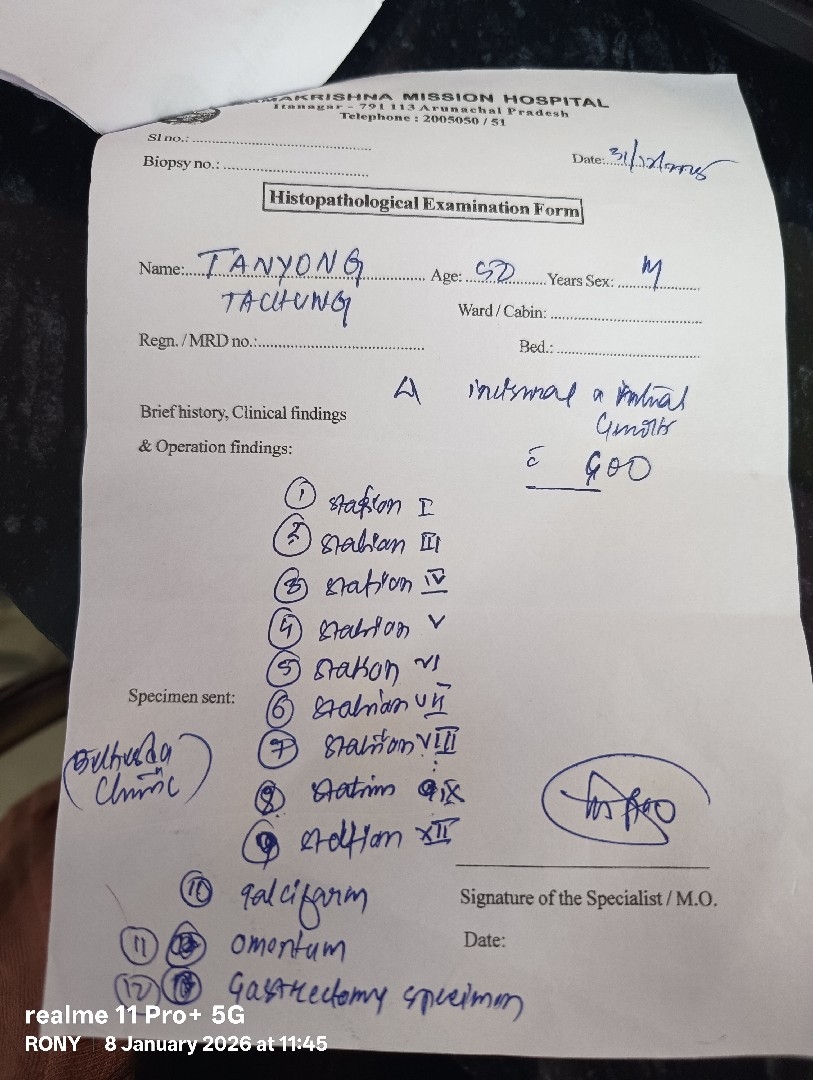 AKRISHNA MISSION HOSPITAL
Itanagar - 791 113 Arunachal Pradesh
Telephone : 2005050 / 51
Sl no.:
Biopsy no.:
Date: 31/12/2025
Histopathological Examination Form
Name: TANYONG Age: 50 Years Sex: M
TACHUNG
Ward / Cabin:
Regn. / MRD no.:
Bed.:
Brief history, Clinical findings
& Operation findings:
GOO
① station I
② station III
③ station IV
④ station V
⑤ station VI
⑥ station VII
⑦ station VIII
⑧ station IX
⑨ station XII
⑩ falciform
⑪ omentum
⑫ Gastrectomy specimen
Specimen sent:
Clinic)
Signature of the Specialist / M.O.
Date:
realme 11 Pro+ 5G
RONY 8 January 2026 at 11:45